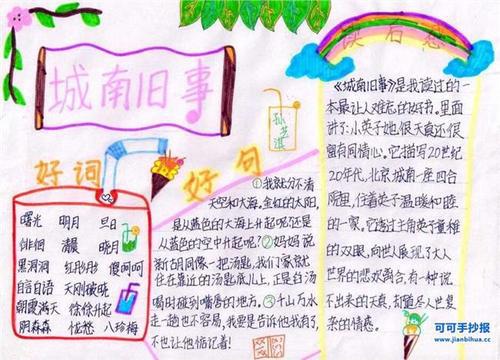 城南旧事
读后感
孙艺淇
好词
曙光 明月 旦日
徘徊 清晨 晓月
黑洞洞 红彤彤 傻呵呵
自言自语 天刚破晓
朝霞满天 徐徐升起
阴森森 恍惚 八珍梅
好句
①我就分不清
天空和大海,金红的太阳,
是从蓝色的大海上升起呢?还是
从蓝色的空中升起呢?②妈妈说
新门胡同像一把汤匙,我们家就
住在靠近的汤匙底儿上,正是舀汤
喝时碰到嘴唇的地方。③十山万水
走一趟也不容易,我要是告诉他我有了,
不也让他惦记着!
《城南旧事》是我读过的一
本最让人难忘的好书。里面
讲了:小英子她很天真还很
留有同情心。它描写20世纪
20年代,北京城南一座四合
院里,住着英子温暖和睦
的一家。它透过主角英子童稚
的双眼,向世人展现了大人
世界的悲欢离合,有一种说
不出来的天真,却道尽人世复
杂的情感。
可可手抄报
www.jianbihua.cc